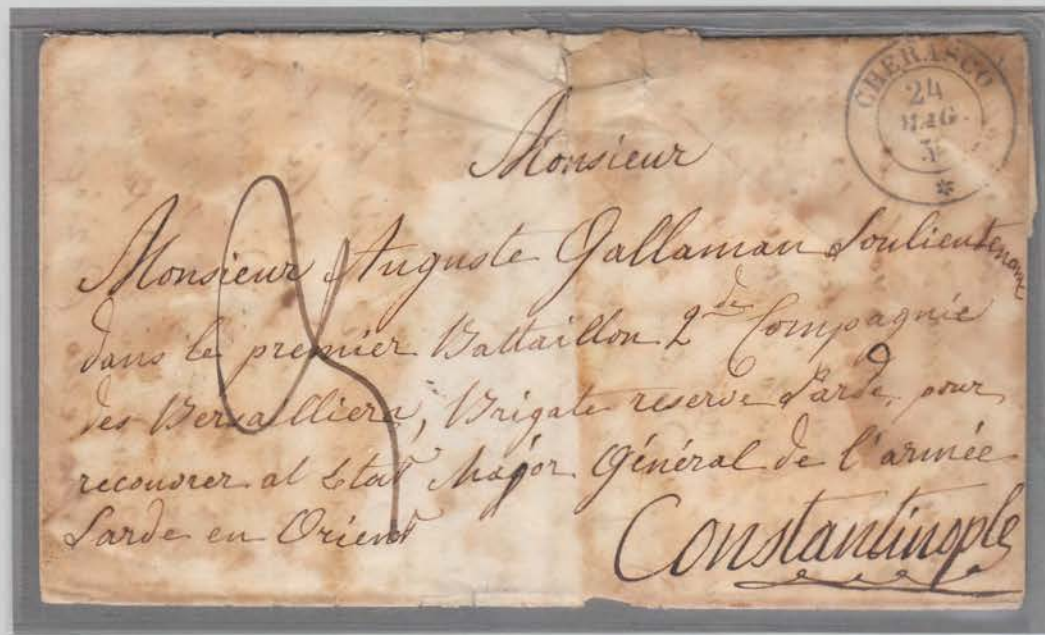 CHERASCO
24
MAG
Monsieur
Monsieur Auguste Gallaman Soulieutenant
dans le premier Battaillon 2de Compagnie
des Bersalliera, Brigate reserve Sarde, pour
recouvrer al Etat Major Général de l'armée
Sarde en Orient
Constantinople